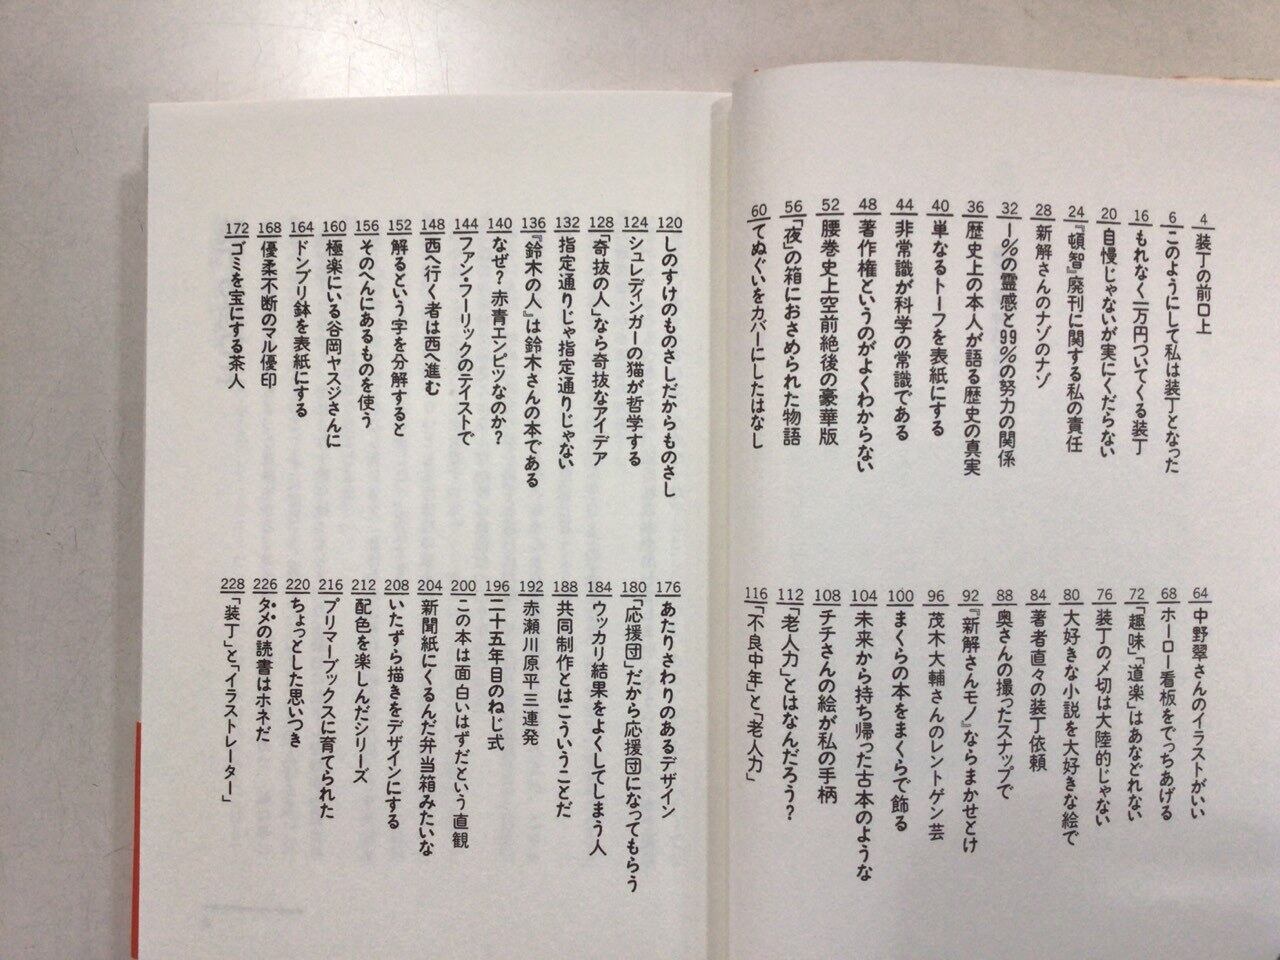 4 装丁の前口上
6 このようにして私は装丁となった
16 もれなく一万円ついてくる装丁
20 自慢じゃないが実にくだらない
24 『頓智』廃刊に関する私の責任
28 新解さんのナゾのナゾ
32 1%の霊感と99%の努力の関係
36 歴史上の本人が語る歴史の真実
40 単なるトーフを表紙にする
44 非常識が科学の常識である
48 著作権というのがよくわからない
52 腰巻史上空前絶後の豪華版
56 「夜」の箱におさめられた物語
60 てぬぐいをカバーにしたはなし
64 中野翠さんのイラストがいい
68 ホーロー看板をでっちあげる
72 「趣味」「道楽」はあなどれない
76 装丁の〆切は大陸的じゃない
80 大好きな小説を大好きな絵で
84 著者直々の装丁依頼
88 奥さんの撮ったスナップで
92 『新解さんモノ』ならまかせとけ
96 茂木大輔さんのレントゲン芸
100 まくらの本をまくらで飾る
104 未来から持ち帰った古本のような
108 チチさんの絵が私の手柄
112 「老人力」とはなんだろう?
116 「不良中年」と「老人力」
120 しのすけのものさしだからものさし
124 シュレディンガーの猫が哲学する
128 「奇抜の人」なら奇抜なアイデア
132 指定通りじゃ指定通りじゃない
136 『鈴木の人』は鈴木さんの本である
140 なぜ?赤青エンピツなのか?
144 ファン・フーリックのテイストで
148 西へ行く者は西へ進む
152 解るという字を分解すると
156 そのへんにあるものを使う
160 極楽にいる谷岡ヤスジさんに
164 ドンブリ鉢を表紙にする
168 優柔不断のマル優印
172 ゴミを宝にする茶人
176 あたりさわりのあるデザイン
180 「応援団」だから応援団になってもらう
184 ウッカリ結果をよくしてしまう人
188 共同制作とはこういうことだ
192 赤瀬川原平三連発
196 二十五年目のねじ式
200 この本は面白いはずだという直観
204 新聞紙にくるんだ弁当箱みたいな
208 いたずら描きをデザインにする
212 配色を楽しんだシリーズ
216 プリマーブックスに育てられた
220 ちょっとした思いつき
226 タメの読書はホネだ
228 「装丁」と「イラストレーター」